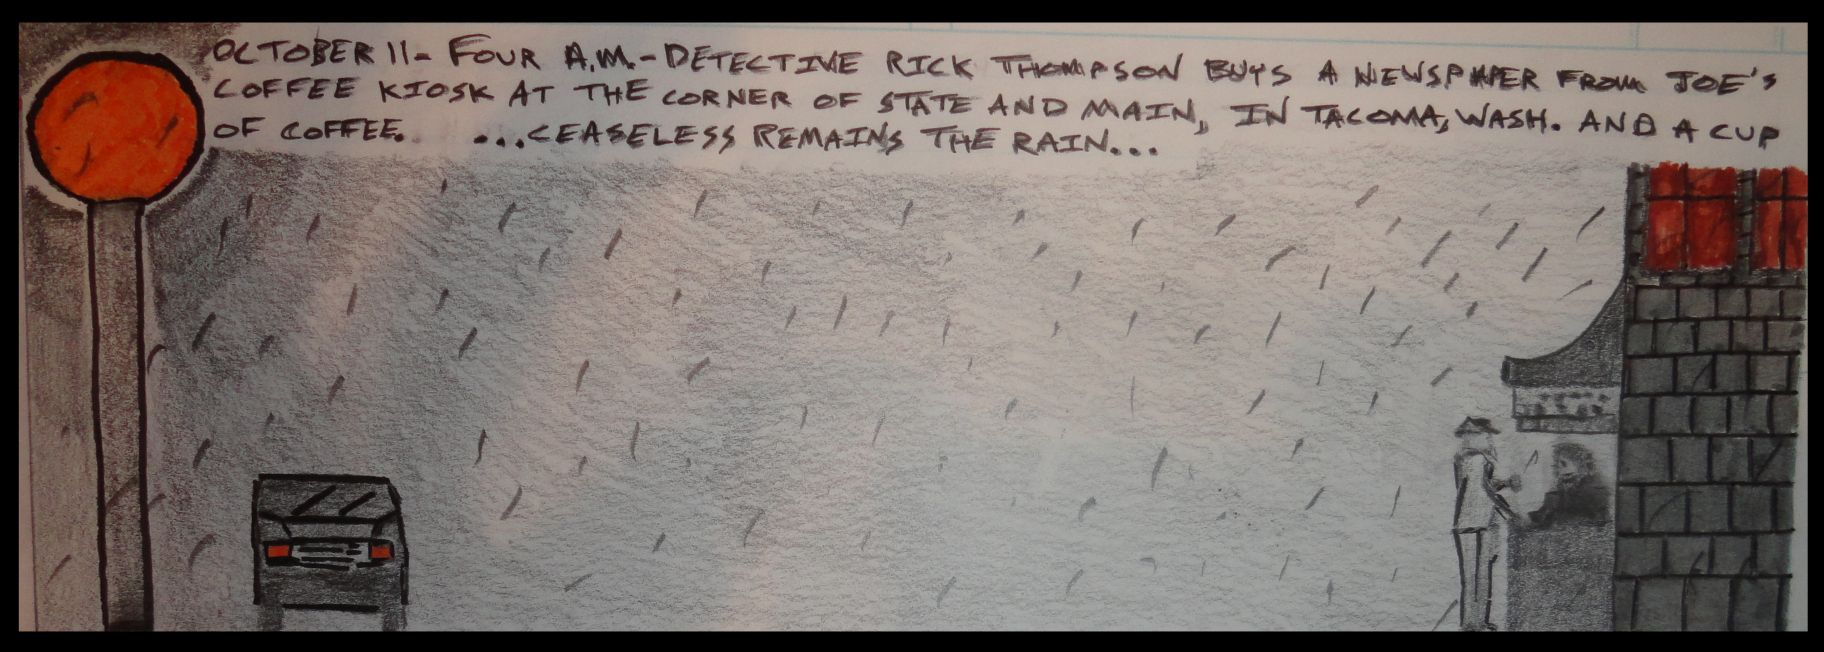 OCTOBER 11- FOUR A.M.-DETECTIVE RICK THOMPSON BUYS A NEWSPAPER FROM JOE'S
COFFEE KIOSK AT THE CORNER OF STATE AND MAIN, IN TACOMA, WASH. AND A CUP
OF COFFEE. ...CEASELESS REMAINS THE RAIN...